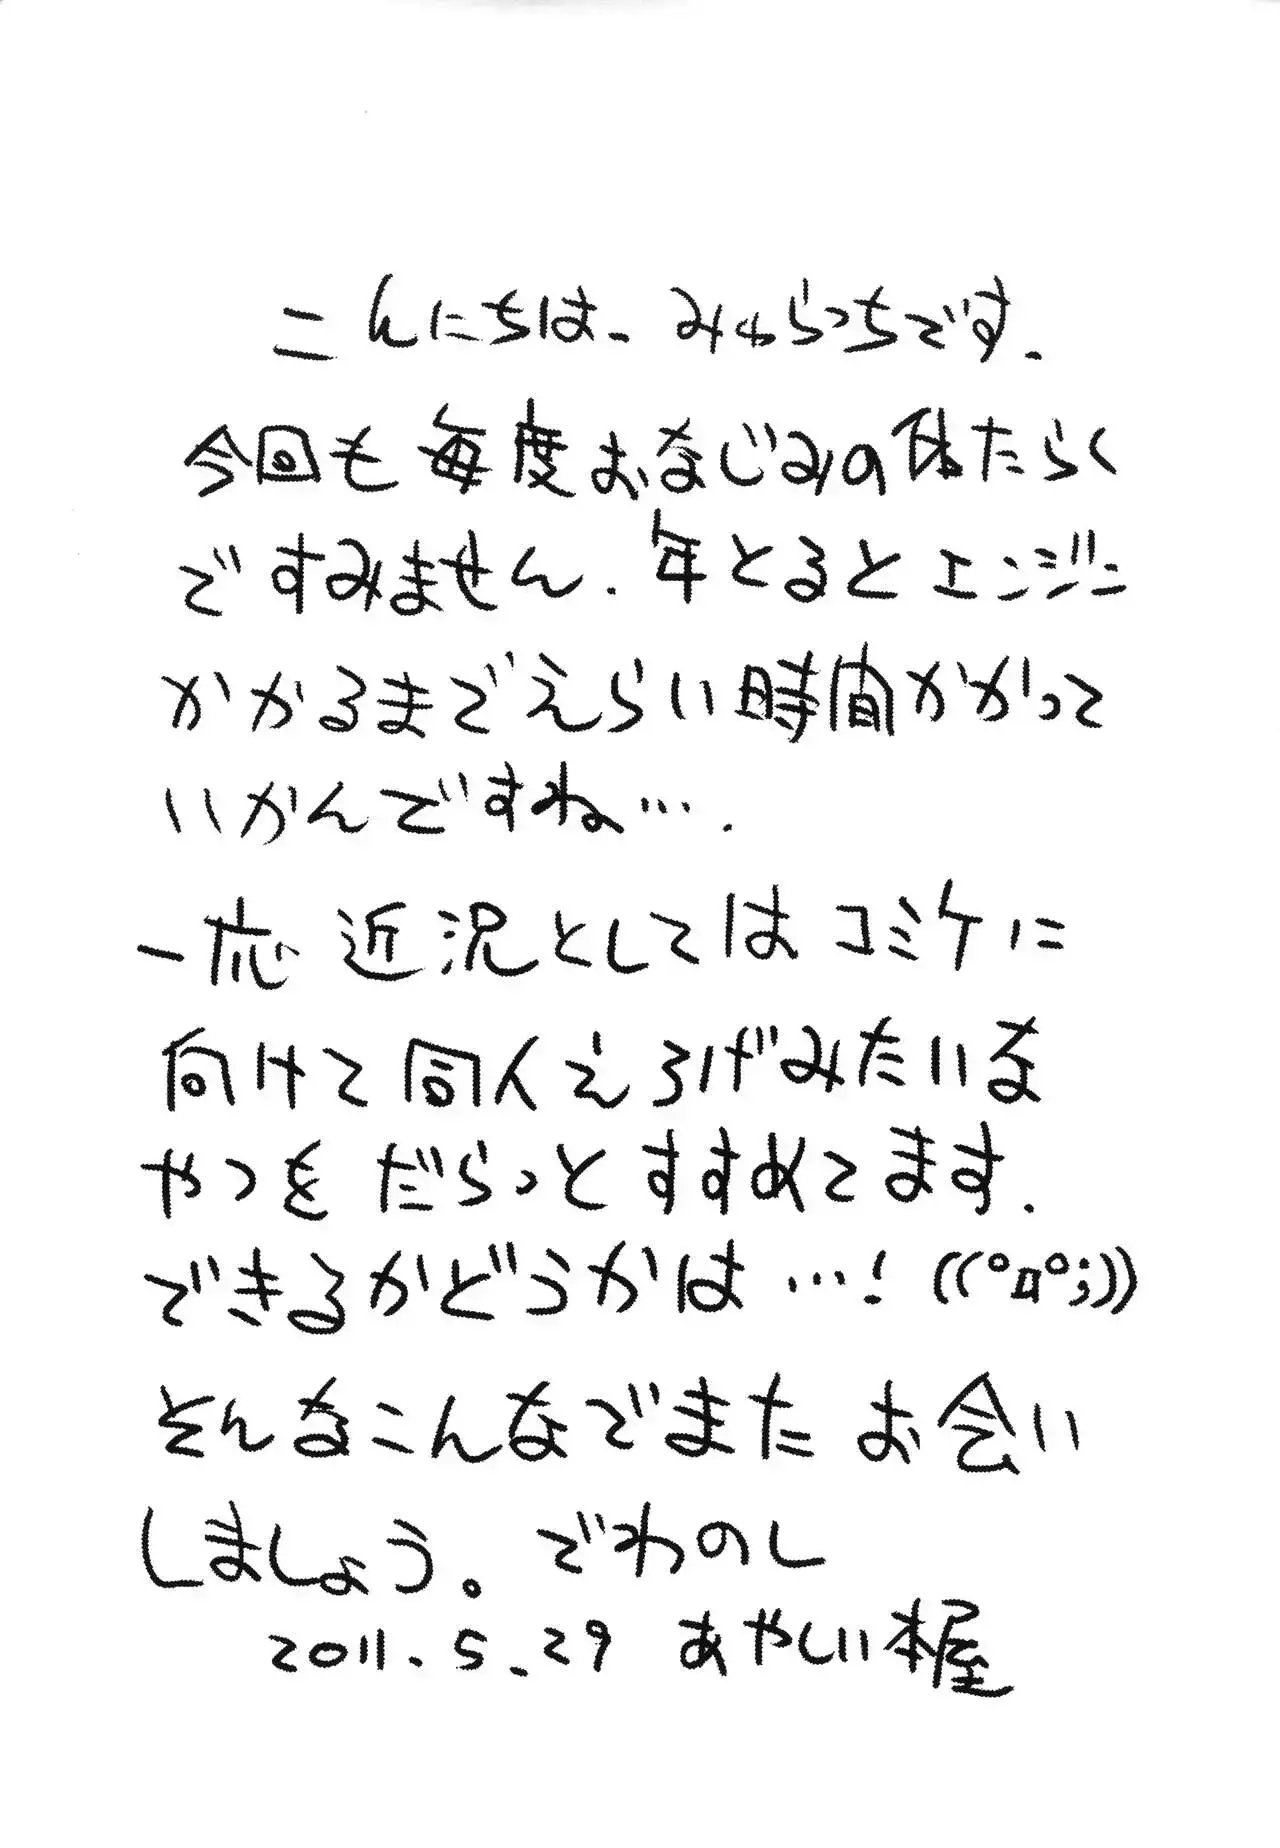 こんにちは、みゅらっちです.
今回も毎度おなじみの体たらく
ですみません.年とるとエンジン
かかるまでえらい時間がかかって
いかんですね….
一応近況としてはコミケに
向けて同人えろげみたいな
やつをだらっとすすめてます.
できるかどうかは…! ((°д°;))
そんなこんなでまたお会い
しましょう。でわのし
2011.5.29 あやしい本屋